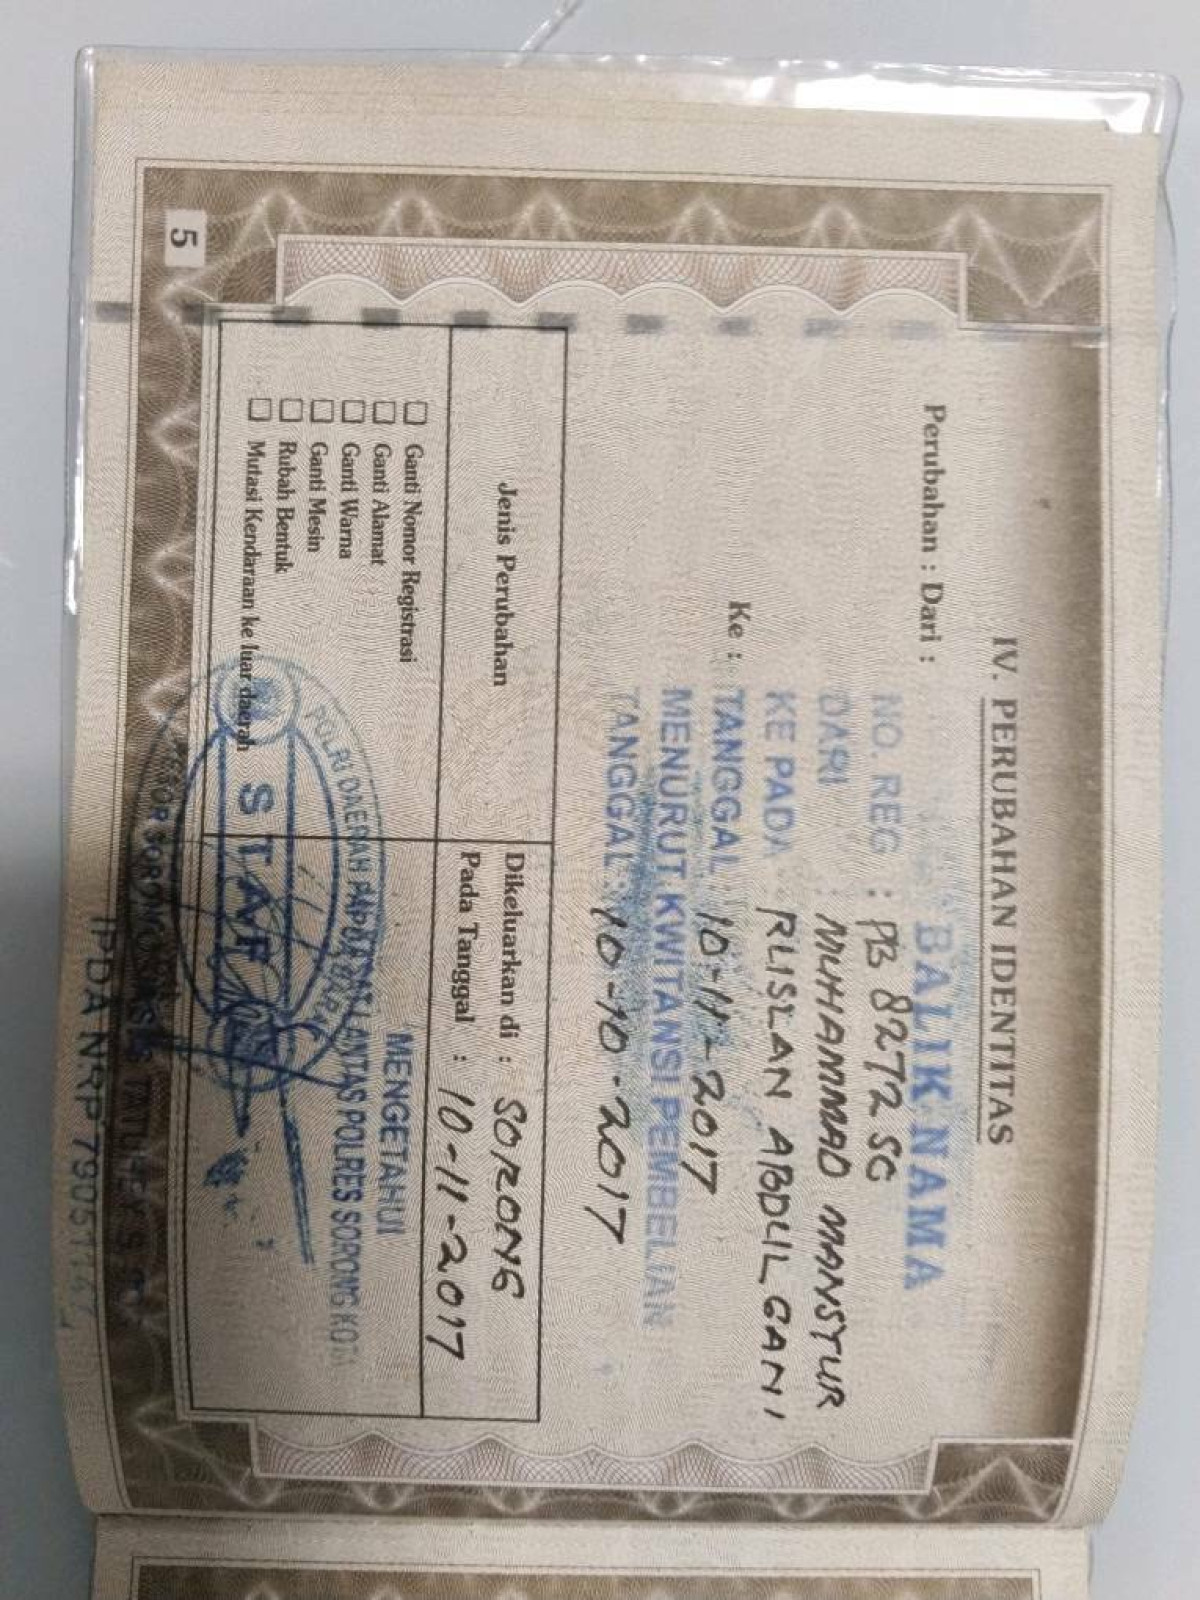 IV. PERUBAHAN IDENTITAS
BALIK NAMA
Perubahan : Dari :
NO. REG : PB 8272 SC
DARI : MUHAMMAD MANSYUR
KE PADA : RUSLAN ABDUL GANI
Ke : TANGGAL 10-11-2017
MENURUT KWITANSI PEMBELIAN
TANGGAL : 10-10-2017
Jenis Perubahan
Dikeluarkan di : SORONG
Pada Tanggal : 10-11-2017
Ganti Nomor Registrasi
Ganti Alamat
Ganti Warna
Ganti Mesin
Rubah Bentuk
Mutasi Kendaraan ke luar daerah
MENGETAHUI
LANTAS POLRES SORONG KOTA
POLRI DAERAH PAPUA BARAT
STAF
SORONG
IPDA NRP
5